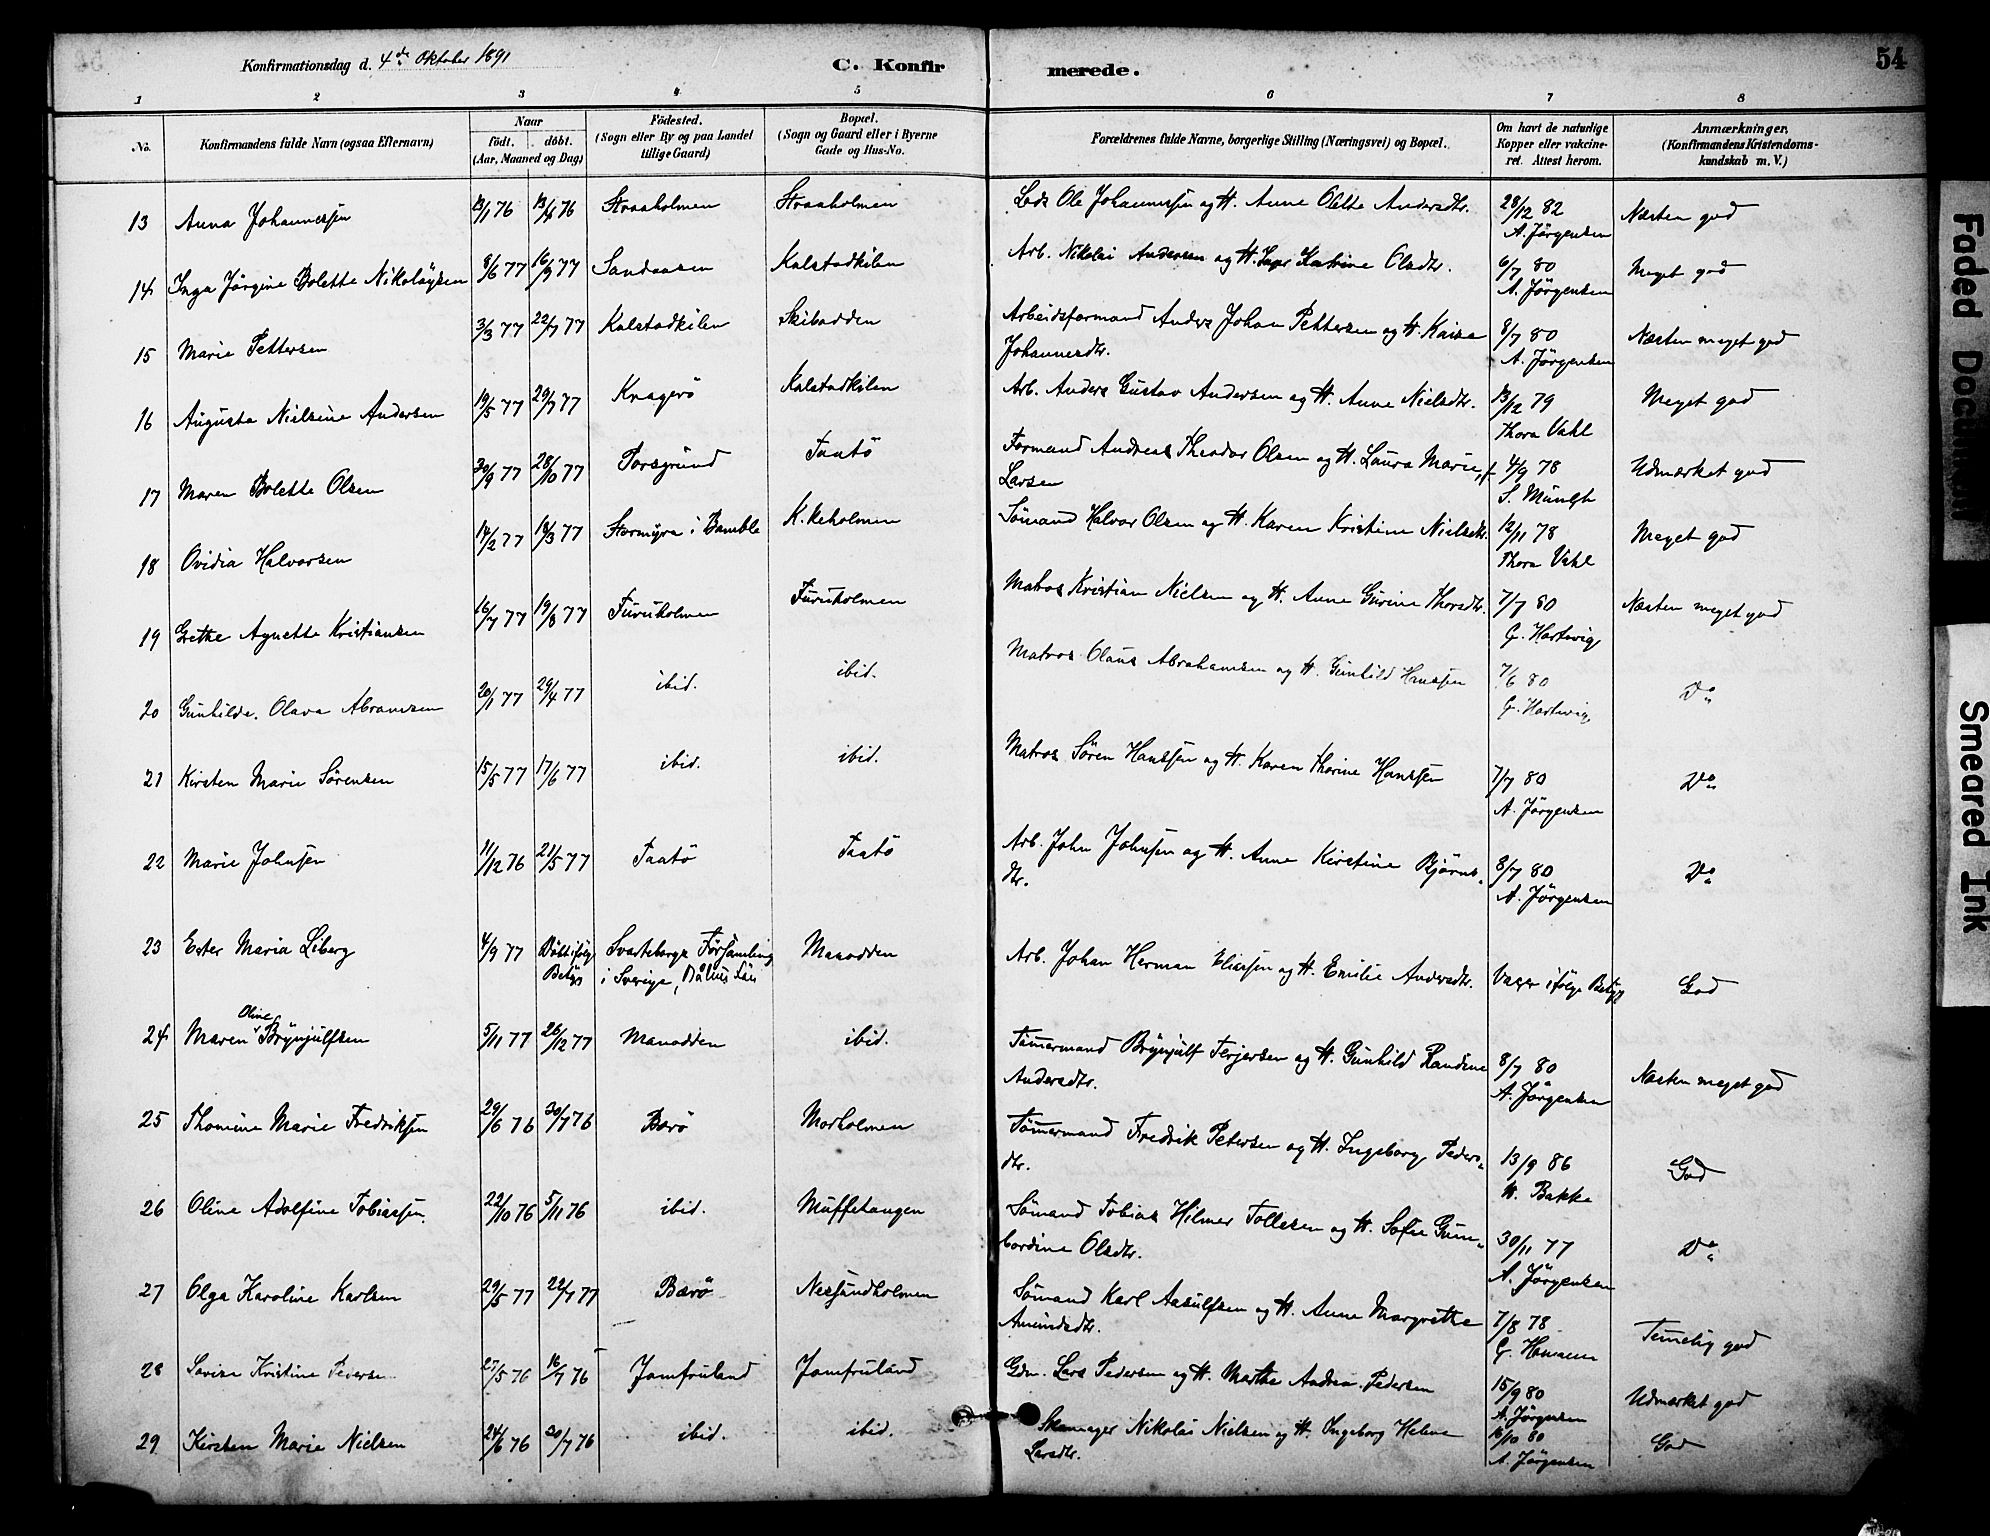 Konfirmationsdag d. 4de Oktober 1891
C. Konfir merede.
54
1 2 3 4 5 6 7 8
No. Konfirmandens fulde Navn (ogsaa Efternavn) Naar født. døbt. (Aar, Maaned og Dag) Fødested. (Sogn eller By og paa Landet tillige Gaard) Bopæl. (Sogn og Gaard eller i Byerne Gade og Hus-No. Forældrenes fulde Navne, borgerlige Stilling (Næringsvei) og Bopæl. Om havt de naturlige Kopper eller vakcineret. Attest herom. Anmærkninger. (Konfirmandens Kristendomskundskab m. V.)
13 Anna Johannessen 76 76 Straaholmen Straaholmen Lods Ole Johannessen og H. Anne Olette Andersdtr. 28/12 82 A. Jørgensen Næsten god
14 Inga Jørgine Bolette Nikolaysen 8/6 77 16/9 77 Sandaasen Kalstadkilen Arb. Nikolai Andersen og H. Katrine Olsdtr. 6/7 80 A. Jørgensen Meget god
15 Marie Pettersen 3/3 77 22/7 77 Kalstadkilen Skibodden Arbeidsformand Anders Johan Pettersen og H. Kaisa
Johannesdtr. 8/7 80 A. Jørgensen Næsten meget god
16 Augusta Nielsine Andersen 19/5 77 29/7 77 Kragerö Kalstadkilen Arb. Anders Gustav Andersen og H. Anne Nielsdtr. 13/12 79 Thora Vahl Meget god
17 Maren Bolette Olsen 30/9 77 28/10 77 Porsgrund Taatö Formand Andreas Theodor Olsen og H. Laura Marie, f.
Larsen 4/9 78 S. Münch Udmærket god
18 Ovidia Halvorsen 14/2 77 18/3 77 Stormyra i Bamble K.keholmen Sømand Halvor Olsen og H. Karen Kristine Nielsdtr. 12/11 78 Thora Vahl Meget god
19 Grethe Agnette Kristiansen 16/7 77 19/8 77 Furuholmen Furuholmen Matros Kristian Nielsen og H. Anne Gurine Thorsdtr. 7/7 80 G. Hartwig Næsten meget god
20 Gunhilda Olava Abramsen 20/1 77 29/4 77 ibid. ibid. Matros Olaus Abrahamsen og H. Gunhild Hanssen 7/6 80 G. Hartwig Do
21 Kirsten Marie Sørensen 15/5 77 17/6 77 ibid. ibid. Matros Søren Hanssen og H. Karen Thorine Hanssen 7/7 80 A. Jørgensen Do
22 Marie Johnsen 11/12 76 21/5 77 Taatö Taatö Arb. John Johnsen og H. Anne Kirstine Bjørns-
dtr. 8/7 80 A. Jørgensen Do
23 Ester Maria Liberg 4/9 77 Døbt ifølge Betyg Svarteborgs Församling
i Sverige, Bohus Län Manodden Arb. Johan Herman Eliassen og H. Emilie Andersdtr. Vacc. ifølge Betyg God
24 Maren Oline Brynjulfsen 5/11 77 26/12 77 Manodden ibid. Tømmermand Brynjulf Terjersen og H. Gunhild Randine
Andersdtr. 8/7 80 A. Jørgensen Næsten meget god
25 Thomine Marie Fredriksen 29/6 76 30/7 76 Bærö Morholmen Tømmermand Fredrik Petersen og H. Ingeborg Peders-
dtr. 13/9 86 H. Bakke God
26 Oline Adolfine Tobiassen 22/10 76 5/11 76 ibid. Muffetangen Sømand Tobias Hilmer Tollefsen og H. Sofie Gun-
bordine Olsdtr. 30/11 77 A. Jørgensen Do
27 Olga Karoline Karlsen 29/5 77 22/7 77 Bærö Nessundholmen Sømand Karl Aasulfsen og H. Anne Margrethe
Amundsdtr. 7/8 78 G. Homann Temelig god
28 Kristine Pedersen 27/5 76 16/7 76 Jomfruland Jomfruland Gdm. Lars Pedersen og H. Marthe Andrea Pedersen 15/9 80 A. Jørgensen Udmærket god
29 Kirsten Marie Nielsen 24/6 76 30/7 76 ibid. ibid. Skomager Nikolai Nielsen og H. Ingeborg Helene
Larsdtr. 80 A. Jørgensen God
Faded Document
Smeared Ink